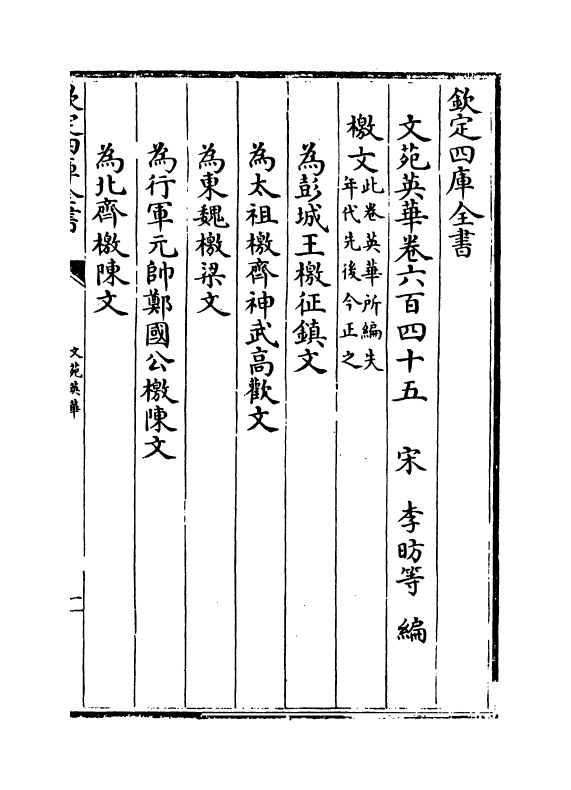 欽定四庫全書
文苑英華卷六百四十五　宋　李昉等　編
檄文此卷英華所編失年代先後今正之
為彭城王檄征鎮文
為太祖檄齊神武高歡文
為東魏檄梁文
為行軍元帥鄭國公檄陳文
為北齊檄陳文
欽定四庫全書
文苑英華